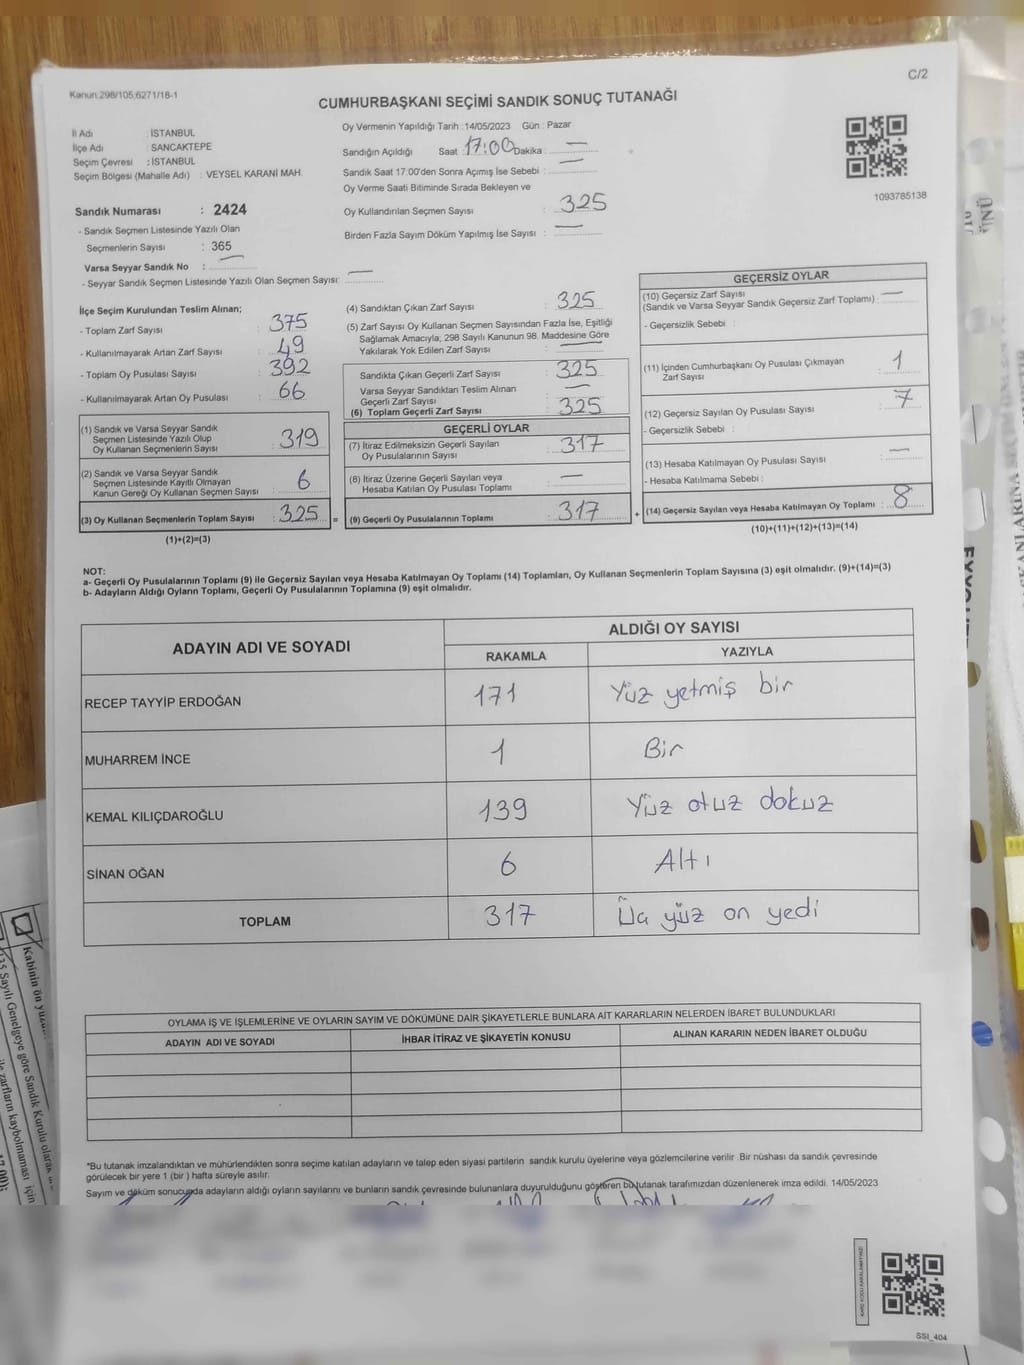 C/2
Kanun:298/105,6271/18-1
CUMHURBAŞKANI SEÇİMİ SANDIK SONUÇ TUTANAĞI
İl Adı : İSTANBUL
İlçe Adı : SANCAKTEPE
Seçim Çevresi : İSTANBUL
Seçim Bölgesi (Mahalle Adı) : VEYSEL KARANİ MAH.
Sandık Numarası : 2424
- Sandık Seçmen Listesinde Yazılı Olan
Seçmenlerin Sayısı : 365
Varsa Seyyar Sandık No : —
- Seyyar Sandık Seçmen Listesinde Yazılı Olan Seçmen Sayısı: —
Oy Vermenin Yapıldığı Tarih :14/05/2023 Gün : Pazar
Sandığın Açıldığı Saat :17:00 Dakika : —
Sandık Saat 17.00'den Sonra Açımış İse Sebebi : —
Oy Verme Saati Bitiminde Sırada Bekleyen ve
Oy Kullandırılan Seçmen Sayısı : 325
Birden Fazla Sayım Döküm Yapılmış İse Sayısı : —
1093785138
İlçe Seçim Kurulundan Teslim Alınan;
- Toplam Zarf Sayısı : 375
- Kullanılmayarak Artan Zarf Sayısı : 49
- Toplam Oy Pusulası Sayısı : 392
- Kullanılmayarak Artan Oy Pusulası : 66
(1) Sandık ve Varsa Seyyar Sandık
Seçmen Listesinde Yazılı Olup
Oy Kullanan Seçmenlerin Sayısı : 319
(2) Sandık ve Varsa Seyyar Sandık
Seçmen Listesinde Kayıtlı Olmayan
Kanun Gereği Oy Kullanan Seçmen Sayısı : 6
(3) Oy Kullanan Seçmenlerin Toplam Sayısı : 325 =
(1)+(2)=(3)
(4) Sandıktan Çıkan Zarf Sayısı : 325
(5) Zarf Sayısı Oy Kullanan Seçmen Sayısından Fazla İse, Eşitliği
Sağlamak Amacıyla, 298 Sayılı Kanunun 98. Maddesine Göre
Yakılarak Yok Edilen Zarf Sayısı : —
Sandıkta Çıkan Geçerli Zarf Sayısı : 325
Varsa Seyyar Sandıktan Teslim Alınan
Geçerli Zarf Sayısı : —
(6) Toplam Geçerli Zarf Sayısı : 325
GEÇERLİ OYLAR
(7) İtiraz Edilmeksizin Geçerli Sayılan
Oy Pusulalarının Sayısı : 317
(8) İtiraz Üzerine Geçerli Sayılan veya
Hesaba Katılan Oy Pusulası Toplamı : —
(9) Geçerli Oy Pusulalarının Toplamı : 317 +
GEÇERSİZ OYLAR
(10) Geçersiz Zarf Sayısı
(Sandık ve Varsa Seyyar Sandık Geçersiz Zarf Toplamı) : —
- Geçersizlik Sebebi :
(11) İçinden Cumhurbaşkanı Oy Pusulası Çıkmayan
Zarf Sayısı : 1
(12) Geçersiz Sayılan Oy Pusulası Sayısı : 7
- Geçersizlik Sebebi :
(13) Hesaba Katılmayan Oy Pusulası Sayısı : —
- Hesaba Katılmama Sebebi :
(14) Geçersiz Sayılan veya Hesaba Katılmayan Oy Toplamı : 8
(10)+(11)+(12)+(13)=(14)
NOT:
a- Geçerli Oy Pusulalarının Toplamı (9) ile Geçersiz Sayılan veya Hesaba Katılmayan Oy Toplamı (14) Toplamları, Oy Kullanan Seçmenlerin Toplam Sayısına (3) eşit olmalıdır. (9)+(14)=(3)
b- Adayların Aldığı Oyların Toplamı, Geçerli Oy Pusulalarının Toplamına (9) eşit olmalıdır.
ADAYIN ADI VE SOYADI ALDIĞI OY SAYISI
RAKAMLA YAZIYLA
RECEP TAYYİP ERDOĞAN 171 Yüz yetmiş bir
MUHARREM İNCE 1 Bir
KEMAL KILIÇDAROĞLU 139 Yüz otuz dokuz
SİNAN OĞAN 6 Altı
TOPLAM 317 Üç yüz on yedi
OYLAMA İŞ VE İŞLEMLERİNE VE OYLARIN SAYIM VE DÖKÜMÜNE DAİR ŞİKAYETLERLE BUNLARA AİT KARARLARIN NELERDEN İBARET BULUNDUKLARI
ADAYIN ADI VE SOYADI İHBAR İTİRAZ VE ŞİKAYETİN KONUSU ALINAN KARARIN NEDEN İBARET OLDUĞU
*Bu tutanak imzalandıktan ve mühürlendikten sonra seçime katılan adayların ve talep eden siyasi partilerin sandık kurulu üyelerine veya gözlemcilerine verilir .Bir nüshası da sandık çevresinde
görülecek bir yere 1 (bir ) hafta süreyle asılır.
Sayım ve döküm sonucunda adayların aldığı oyların sayılarını ve bunların sandık çevresinde bulunanlara duyurulduğunu gösteren bu tutanak tarafımızdan düzenlenerek imza edildi. 14/05/2023
KARE KODU KARALAMAYINIZ!
SSI_404
Kabinin ön yüzü
Sayılı Genelgeye göre Sandık Kurulu olarak
zarfların kaybolmaması için